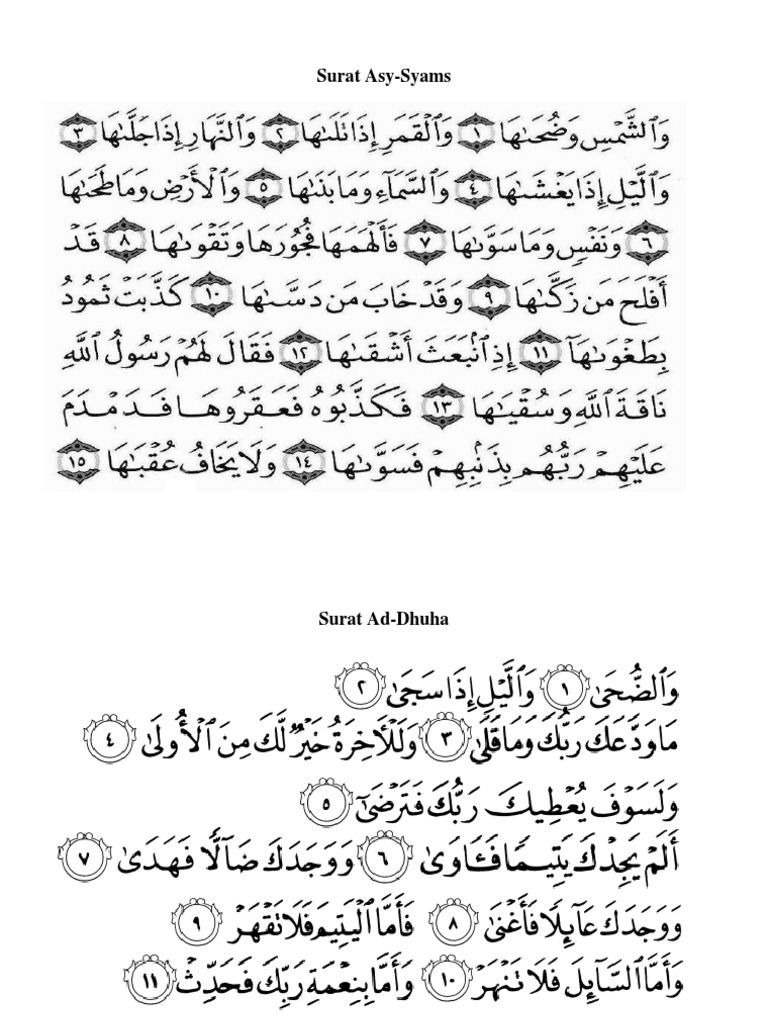 Surat Asy-Syams
وَٱلشَّمْسِ وَضُحَىٰهَا ١ وَٱلْقَمَرِ إِذَا تَلَىٰهَا ٢ وَٱلنَّهَارِ إِذَا جَلَّىٰهَا ٣
وَٱلَّيْلِ إِذَا يَغْشَىٰهَا ٤ وَٱلسَّمَآءِ وَمَا بَنَىٰهَا ٥ وَٱلْأَرْضِ وَمَا طَحَىٰهَا
٦ وَنَفْسٍ وَمَا سَوَّىٰهَا ٧ فَأَلْهَمَهَا فُجُورَهَا وَتَقْوَىٰهَا ٨ قَدْ
أَفْلَحَ مَن زَكَّىٰهَا ٩ وَقَدْ خَابَ مَن دَسَّىٰهَا ١٠ كَذَّبَتْ ثَمُودُ
بِطَغْوَىٰهَآ ١١ إِذِ ٱنۢبَعَثَ أَشْقَىٰهَا ١٢ فَقَالَ لَهُمْ رَسُولُ ٱللَّهِ
نَاقَةَ ٱللَّهِ وَسُقْيَـٰهَا ١٣ فَكَذَّبُوهُ فَعَقَرُوهَا فَدَمْدَمَ
عَلَيْهِمْ رَبُّهُم بِذَنۢبِهِمْ فَسَوَّىٰهَا ١٤ وَلَا يَخَافُ عُقْبَـٰهَا ١٥
Surat Ad-Dhuha
وَٱلضُّحَىٰ ١ وَٱلَّيْلِ إِذَا سَجَىٰ ٢
مَا وَدَّعَكَ رَبُّكَ وَمَا قَلَىٰ ٣ وَلَلْـَٔاخِرَةُ خَيْرٌ لَّكَ مِنَ ٱلْأُولَىٰ ٤
وَلَسَوْفَ يُعْطِيكَ رَبُّكَ فَتَرْضَىٰٓ ٥
أَلَمْ يَجِدْكَ يَتِيمًا فَـَٔاوَىٰ ٦ وَوَجَدَكَ ضَآلًّا فَهَدَىٰ ٧
وَوَجَدَكَ عَآئِلًا فَأَغْنَىٰ ٨ فَأَمَّا ٱلْيَتِيمَ فَلَا تَقْهَرْ ٩
وَأَمَّا ٱلسَّآئِلَ فَلَا تَنْهَرْ ١٠ وَأَمَّا بِنِعْمَةِ رَبِّكَ فَحَدِّثْ ١١